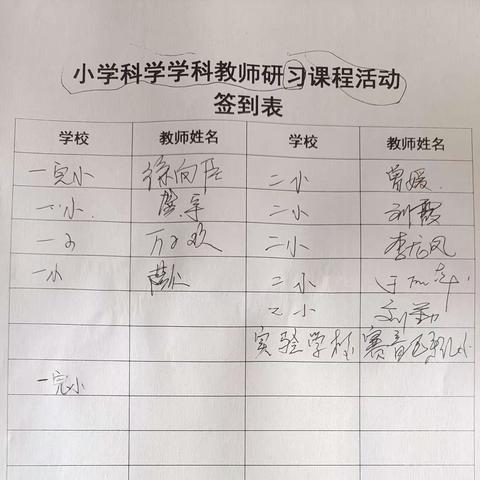 小学科学学科教师研习课程活动
签到表
学校 教师姓名 学校 教师姓名
一完小 徐向 二小 曾媛
一小 龚宇 二小 刘霞
一小 万 欢 二小 李 凤
一小 二小
二小 刘勤
实验学校 赛音
一完小